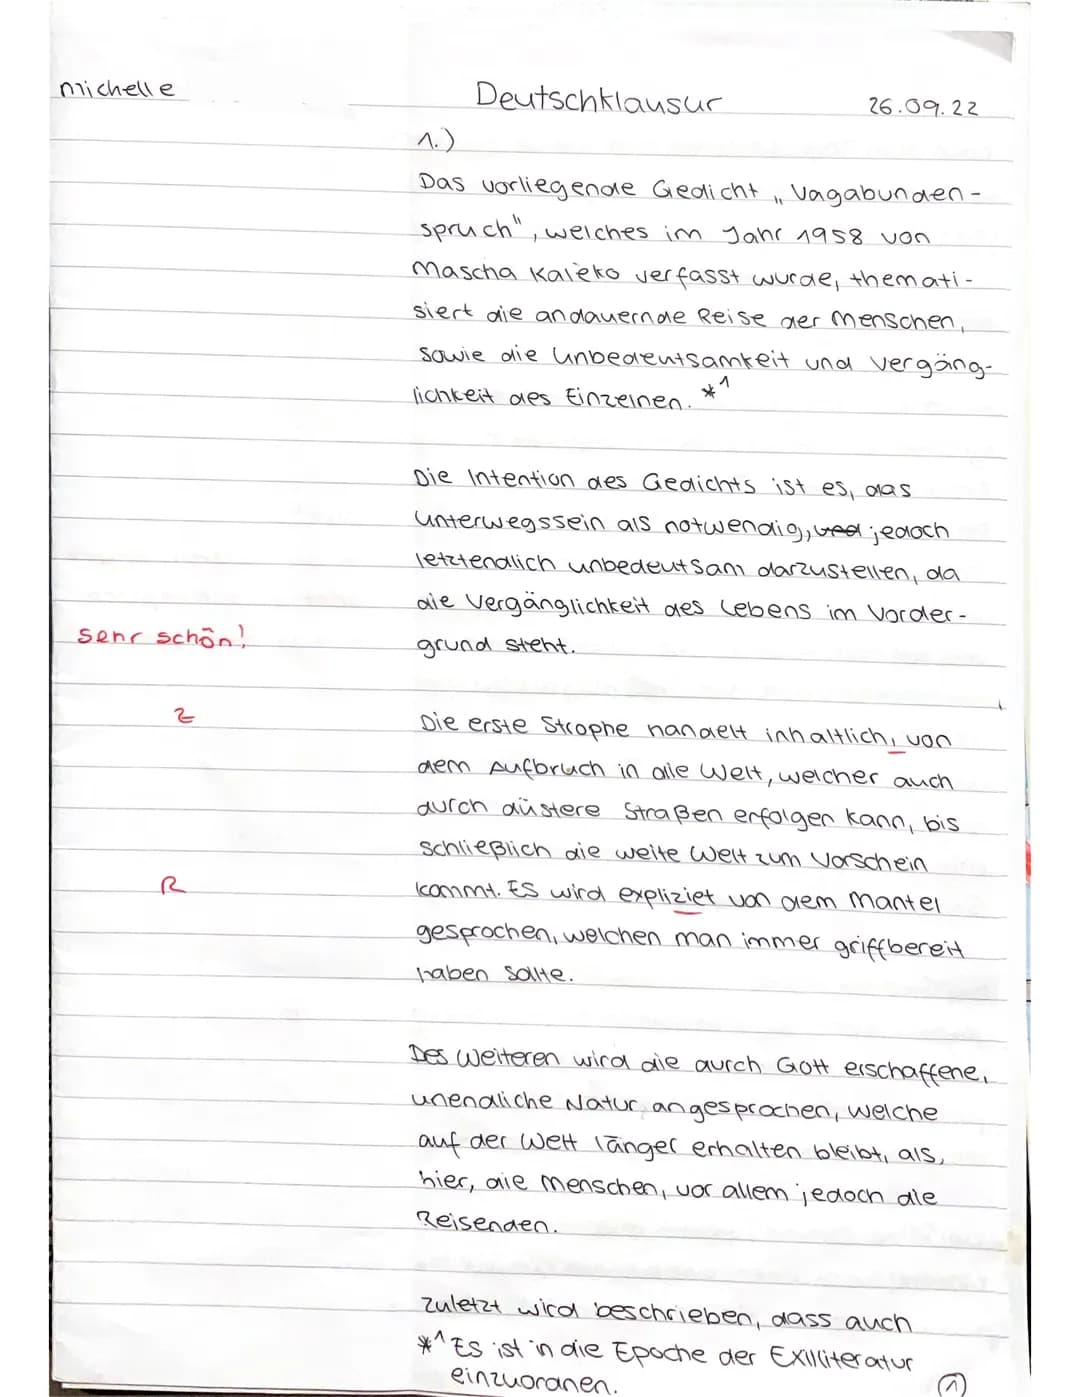 Michelle Deutschklausur 26.09.22
1.)
Das vorliegende Gedicht „Vagabunden-
spruch", welches im Jahr 1958 von
Mascha Kaléko verfasst wurde, themati-
siert die andauernde Reise der Menschen,
sowie die Unbedeutsamkeit und Vergäng-
lichkeit des Einzelnen. *1
Die Intention des Gedichts ist es, das
Unterwegssein als notwendig, und jedoch
letztendlich unbedeutsam darzustellen, da
die Vergänglichkeit des Lebens im Vorder-
sehr schön! grund steht.
Z Die erste Strophe handelt inhaltlich, von
dem Aufbruch in die Welt, welcher auch
durch düstere Straßen erfolgen kann, bis
schließlich die weite Welt zum Vorschein
R kommt. Es wird expliziet von dem Mantel
gesprochen, welchen man immer griffbereit
haben sollte.
Des Weiteren wird die durch Gott erschaffene,
unendliche Natur angesprochen, welche
auf der Welt länger erhalten bleibt, als,
hier, die Menschen, vor allem jedoch die
Reisenden.
Zuletzt wird beschrieben, dass auch
*1 Es ist in die Epoche der Exilliteratur
einzuordnen.
1